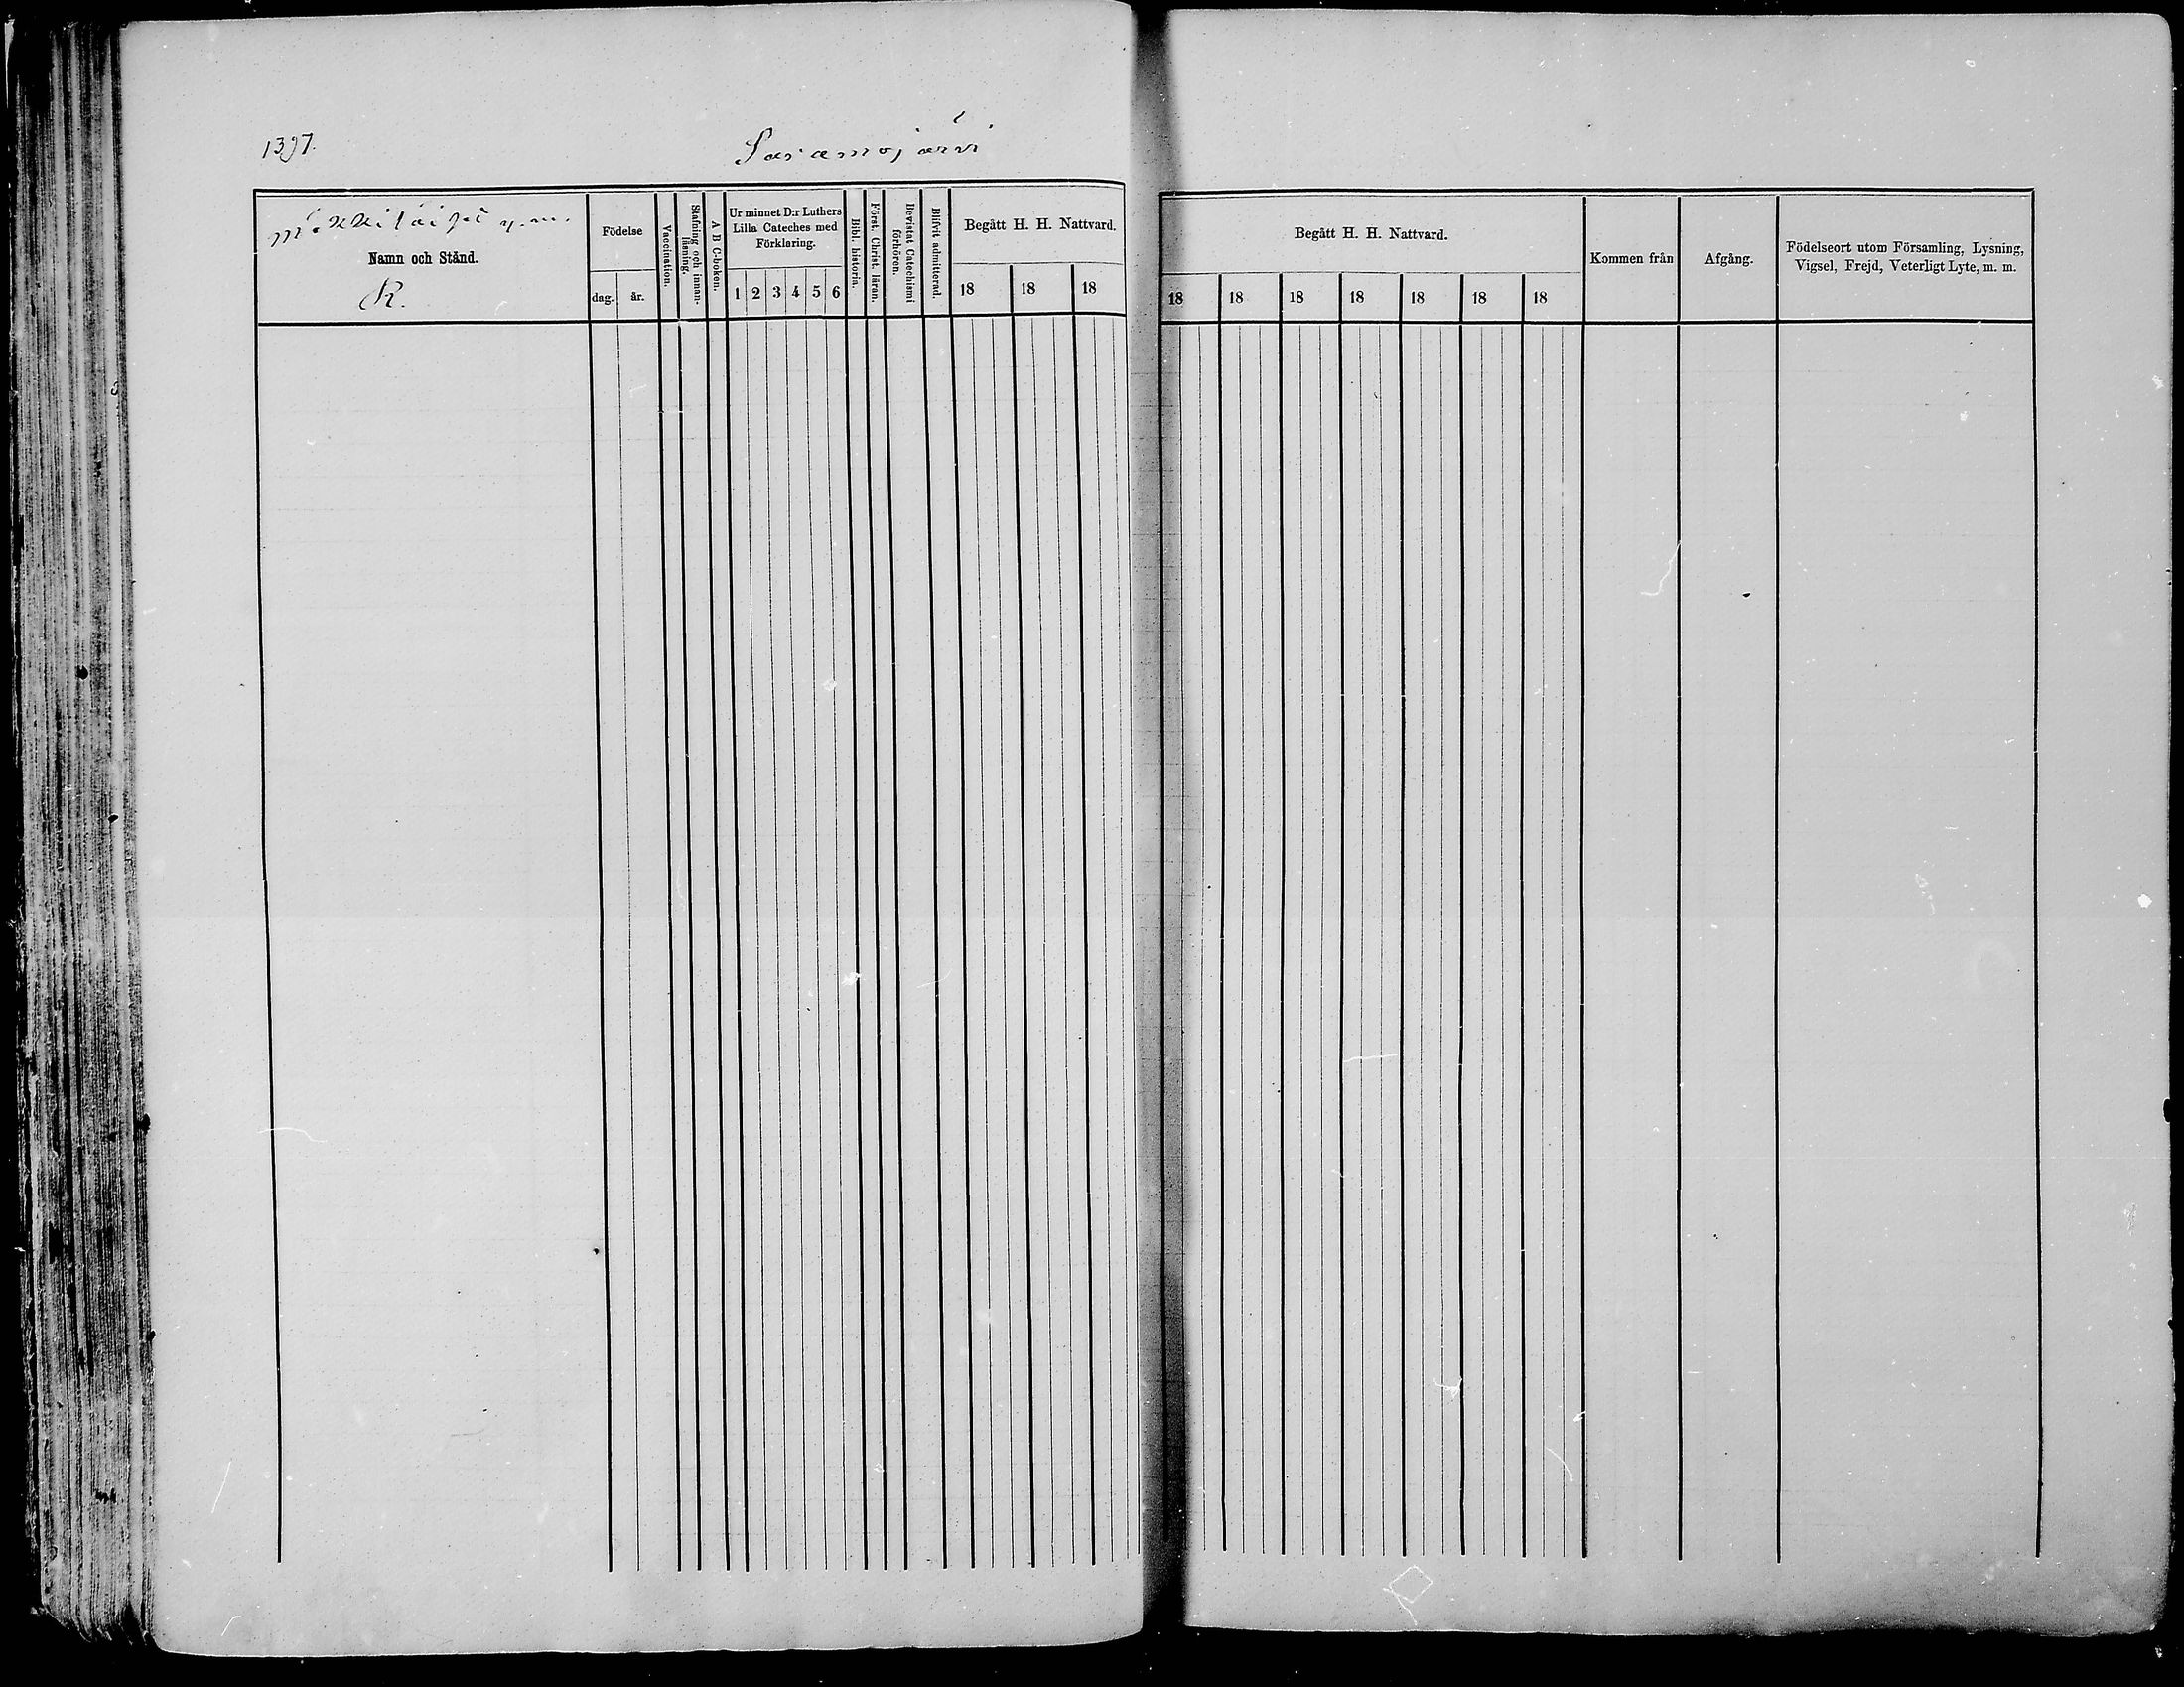 1397.
Saramojärvi
Mökkiläiset y.m.
Namn och Stånd.
R.
Födelse
dag.
år.
Vaccination.
Stafning och innan-
läsning.
A B C-boken.
Ur minnet D:r Luthers
Lilla Cateches med
Förklaring.
1 2 3 4 5 6
Bibl. historia.
Först. Christ. läran.
Bevistat Catechismi
förhören.
Blifvit admitterad.
Begått H. H. Nattvard.
18 18 18
Begått H. H. Nattvard.
18 18 18 18 18 18 18
Kommen från
Afgång.
Födelseort utom Församling, Lysning,
Vigsel, Frejd, Veterligt Lyte, m. m.